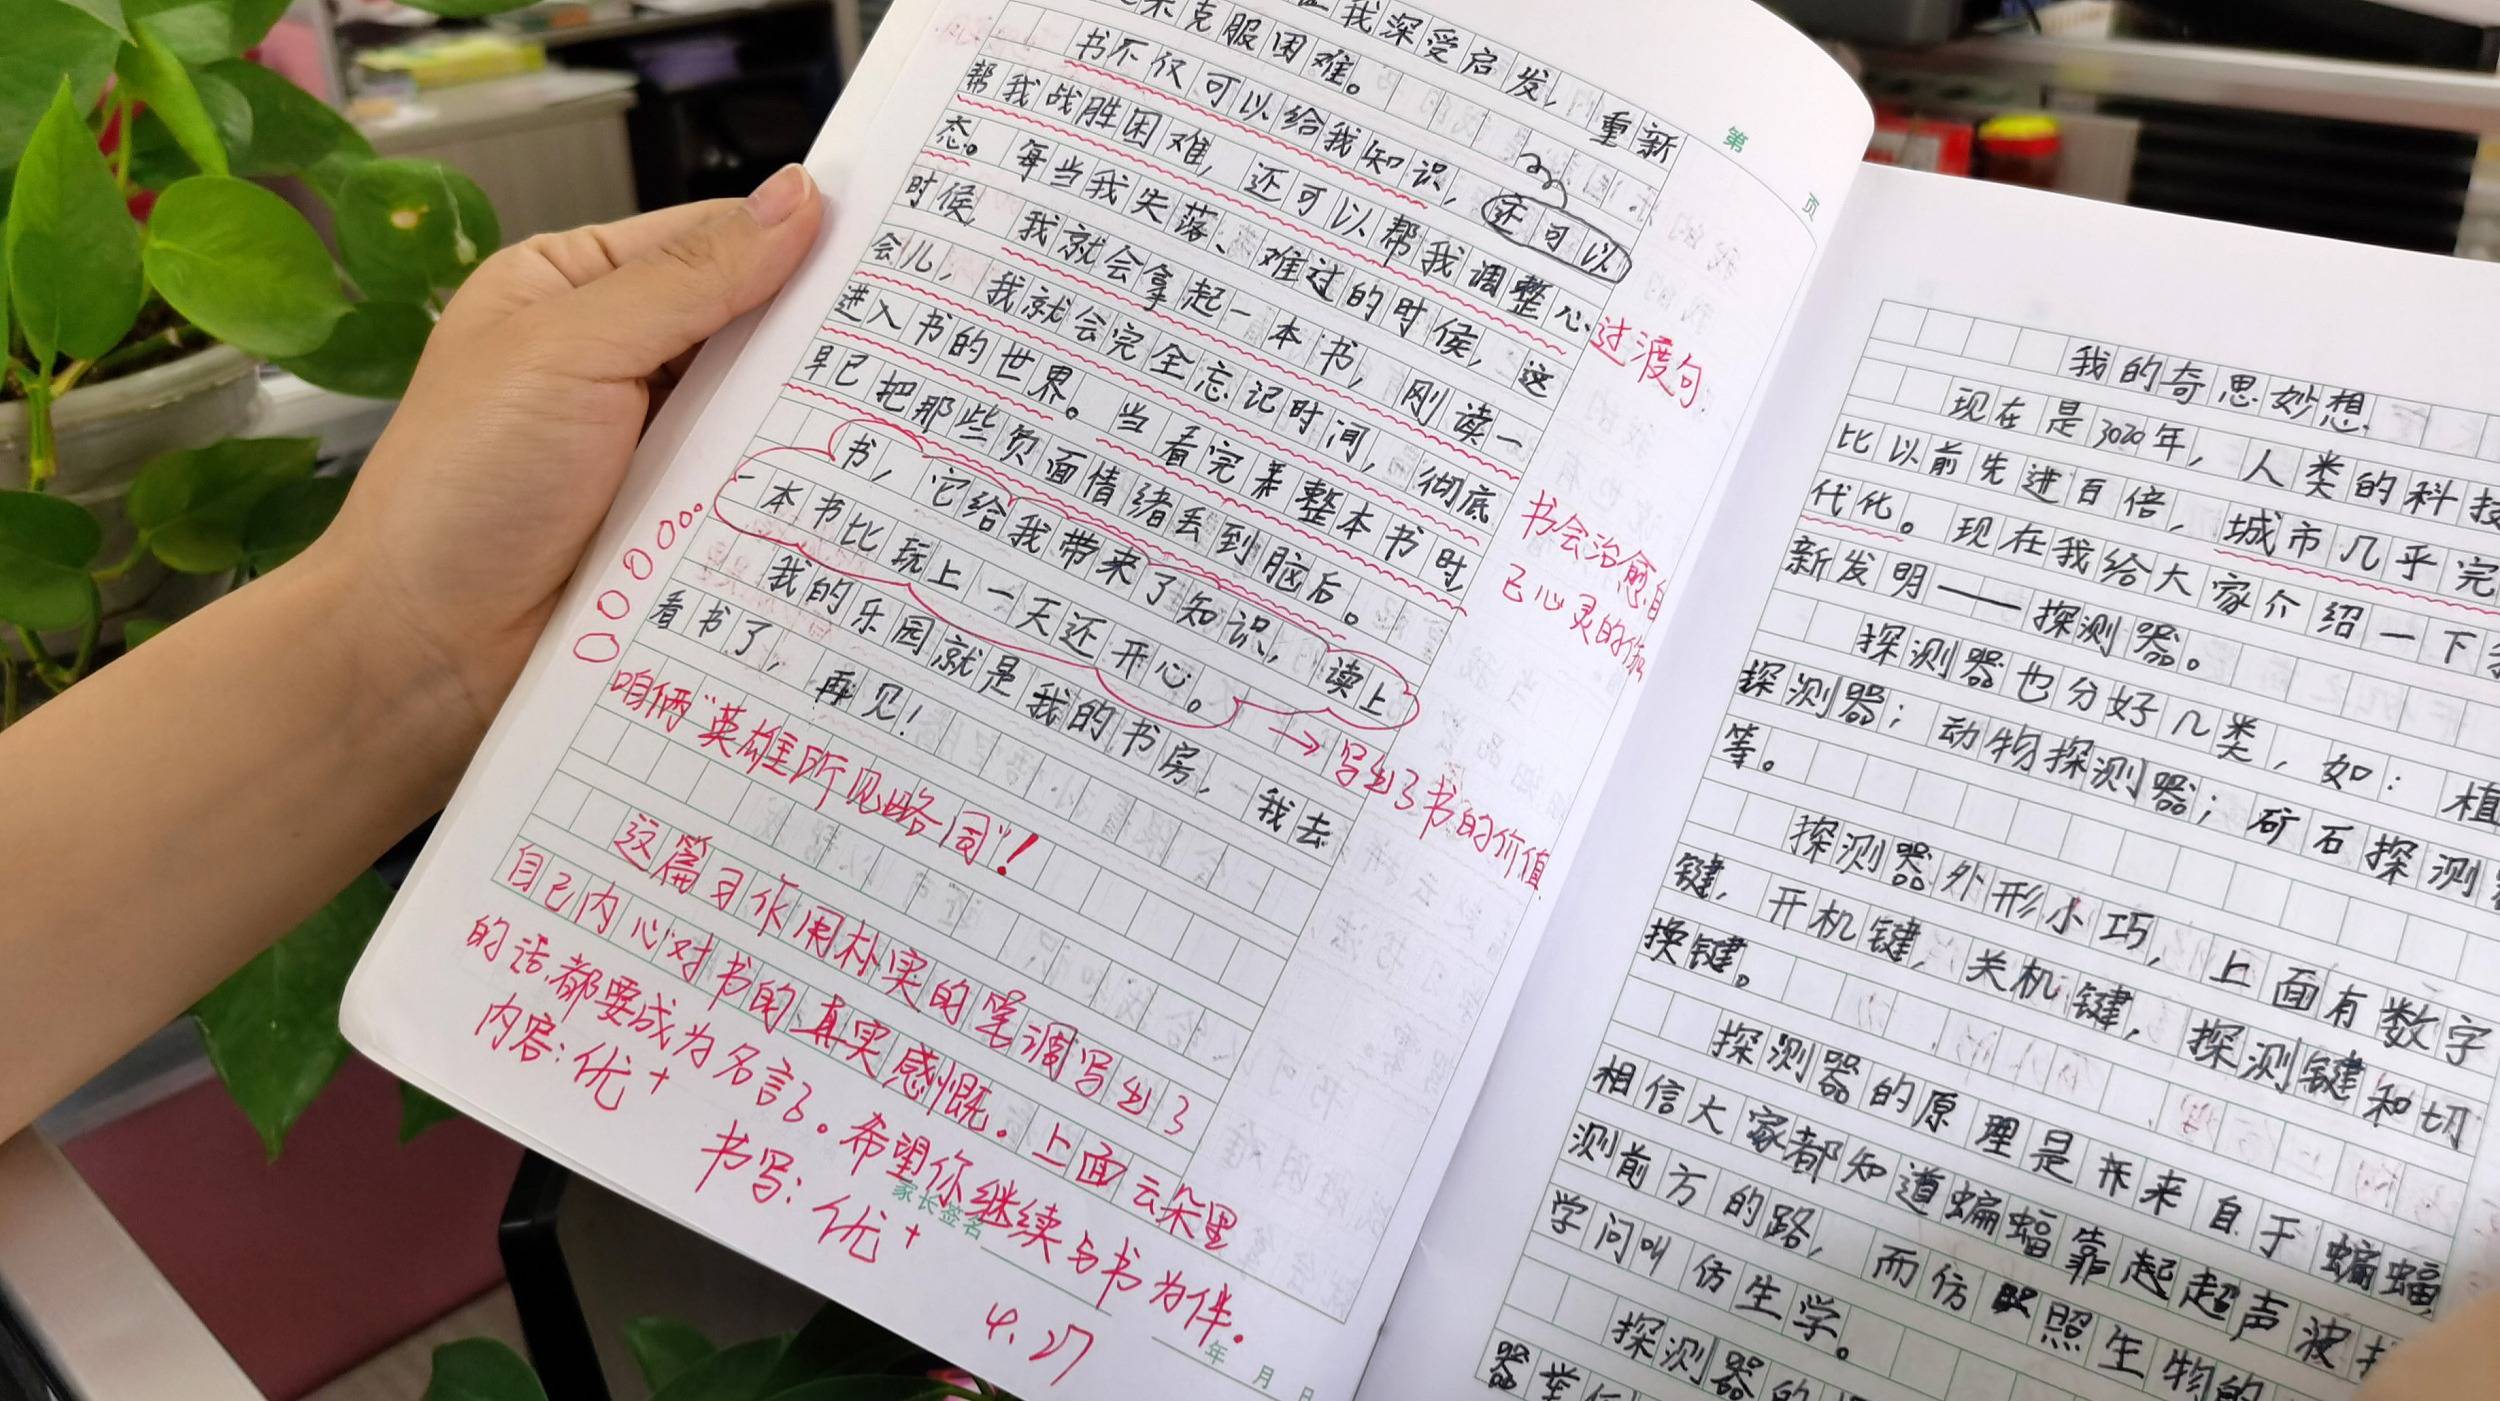 我深受启发，重新
克服困难。
书不仅可以给我知识，还可以
帮我战胜困难，还可以帮我调整心
态。每当我失落、难过的时候，这
时候，我就会拿起一本书，刚读一
会儿，我就会完全忘记时间，彻底
进入书的世界。当看完整本书时
早已把那些负面情绪丢到脑后。
书，它给我带来了知识，读上
一本书比玩上一天还开心。
我的乐园就是我的书房，我去
看书了，再见！
过渡句
书会治愈自
己心灵的
→写出了书的价值
咱俩“英雄所见略同”！
这篇习作用朴实的笔调写出了
自己内心对书的真实感慨。上面云朵里
的话，都要成为名言了。希望你继续与书为伴。
内容：优+
书写：优+
4.27
家长签名
年 月 日
第 页
我的奇思妙想
现在是3020年，人类的科技
比以前先进百倍，城市几乎完
代化。现在我给大家介绍一下
新发明——探测器。
探测器也分好几类，如：植
探测器；动物探测器；矿石探测
等。
探测器外形小巧，上面有数字
键，开机键，关机键，探测键和切
换键。
探测器的原理是来自于蝙蝠，
相信大家都知道蝙蝠靠超声波
测前方的路，而仿照生物的
学问叫仿生学。
探测器的
器